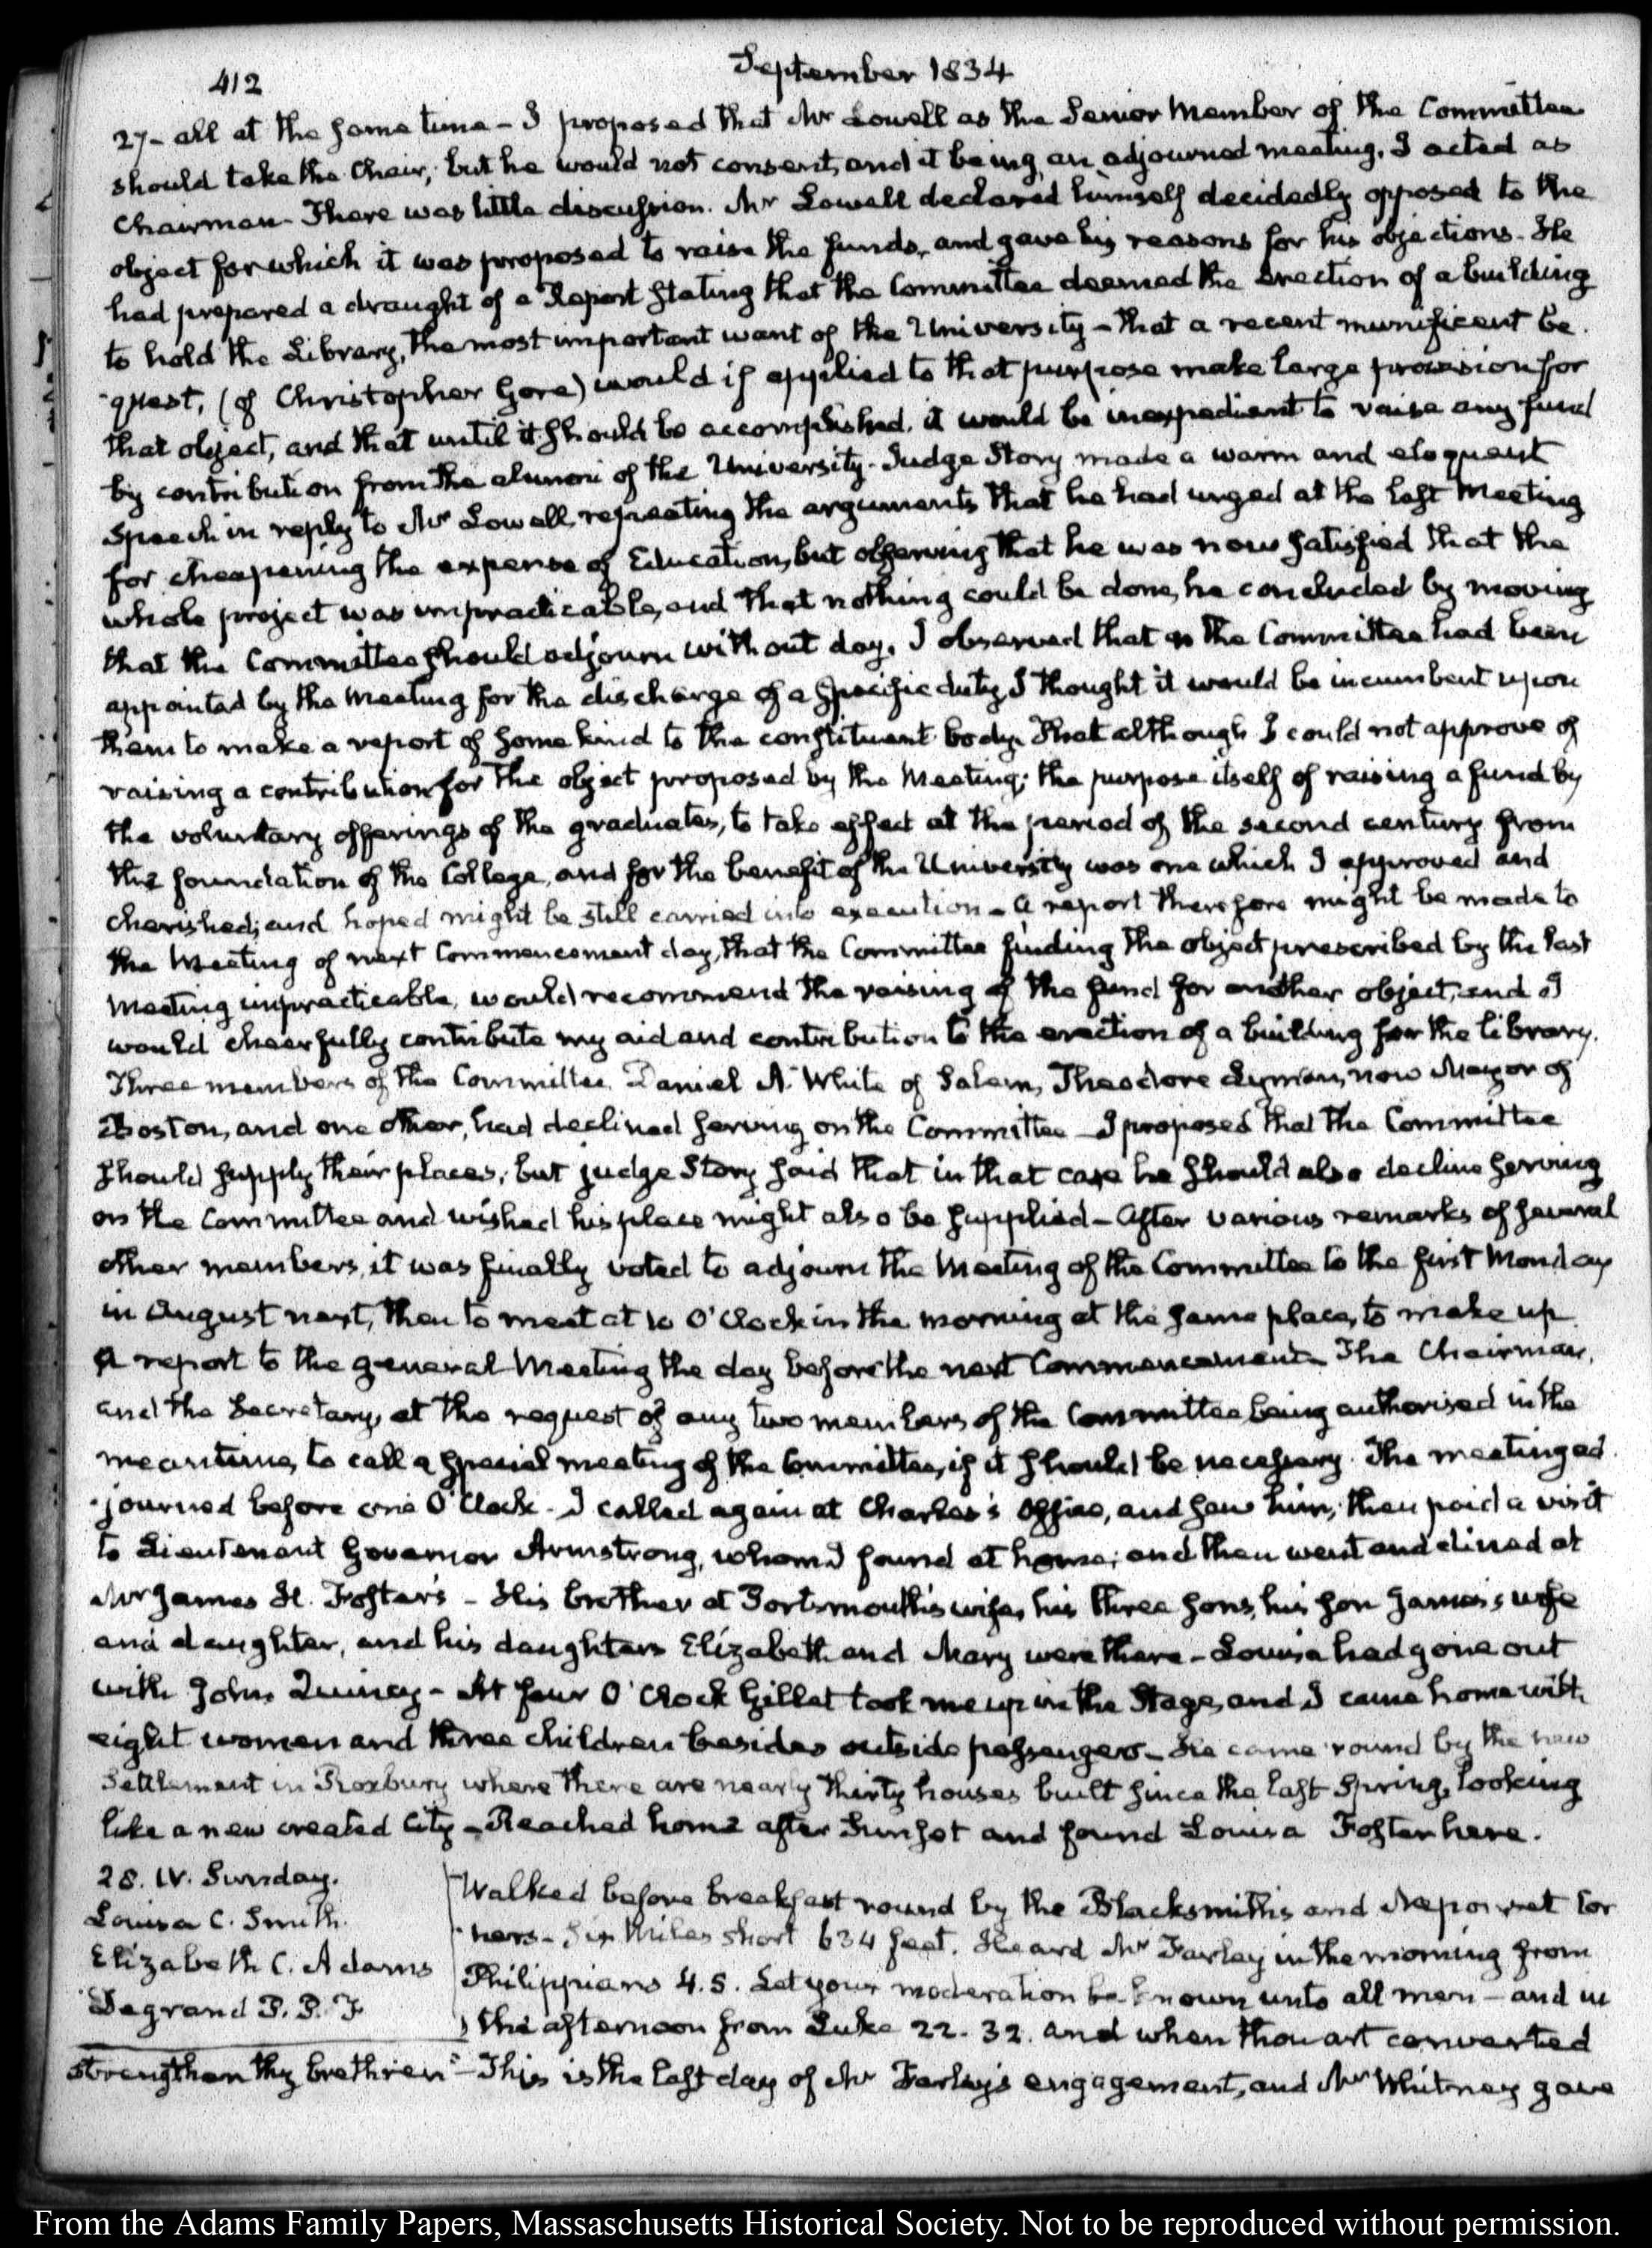 412
September 1834
27- all at the same time - I proposed that Mr Lowell as the Senior Member of the Committee
should take the Chair; but he would not consent, and it being an adjourned meeting, I acted as
Chairman - There was little discussion. Mr Lowell declared himself decidedly opposed to the
object for which it was proposed to raise the funds, and gave his reasons for his objections - He
had prepared a draught of a Report stating that the Committee deemed the erection of a building
to hold the Library, the most important want of the University - that a recent munificent be-
-quest, (of Christopher Gore) would if applied to that purpose make large provision for
that object, and that until it should be accomplished, it would be inexpedient to raise any fund
by contribution from the alumni of the University - Judge Story made a warm and eloquent
speech in reply to Mr Lowell, repeating the arguments that he had urged at the last Meeting
for cheapening the expense of Education, but observing that he was now satisfied that the
whole project was impracticable, and that nothing could be done, he concluded by moving
that the Committee should adjourn without day. I observed that as the Committee had been
appointed by the Meeting for the discharge of a specific duty, I thought it would be incumbent upon
them to make a report of some kind to the constituent body. That although I could not approve of
raising a contribution for the object proposed by the Meeting; the purpose itself of raising a fund by
the voluntary offerings of the graduates, to take effect at the period of the second century from
the foundation of the College, and for the benefit of the University was one which I approved and
cherished; and hoped might be still carried into execution - a report therefore might be made to
the Meeting of next Commencement day, that the Committee finding the object prescribed by the last
Meeting impracticable, would recommend the raising of the fund for another object, and I
would cheerfully contribute my aid and contribution to the erection of a building for the library.
Three members of the Committee, Daniel A. White of Salem, Theodore Lyman, now Mayor of
Boston, and one other, had declined serving on the Committee - I proposed that the Committee
should supply their places; but judge Story said that in that case he should also decline serving
on the Committee and wished his place might also be supplied - After various remarks of several
other members, it was finally voted to adjourn the Meeting of the Committee to the first Monday
in August next, then to meet at 10 O'Clock in the morning at the same place, to make up
a report to the general Meeting the day before the next Commencement - The Chairman,
and the Secretary, at the request of any two members of the Committee being authorised in the
meantime, to call a special meeting of the Committee, if it should be necessary. The meeting ad
-journed before one O'Clock - I called again at Charles's Office, and saw him; then paid a visit
to Lieutenant Governor Armstrong, whom I found at home; and then went and dined at
Mr James H. Foster's - His brother at Portsmouth's wife, his three sons, his son James's wife
and daughter, and his daughters Elizabeth and Mary were there - Louisa had gone out
with John Quincy - At four O'Clock Gillet took me up in the Stage, and I came home with
eight women and three children besides outside passengers - He came round by the new
Settlement in Roxbury where there are nearly thirty houses built since the last Spring, looking
like a new created City - Reached home after Sunset and found Louisa Foster here.
28. IV. Sunday.
Louisa C. Smith.
Elizabeth C. Adams
Degrand P. P. F
Walked before breakfast round by the Blacksmith's and Neponset Cor
-ners - Six Miles short 634 feet. Heard Mr Farley in the morning from
Philippians 4.5. Let your moderation be known unto all men - and in
the afternoon from Luke 22. 32. and when thou art converted
strengthen thy brethren" - This is the last day of Mr Farley's engagement, and Mr Whitney gave
From the Adams Family Papers, Massaschusetts Historical Society. Not to be reproduced without permission.